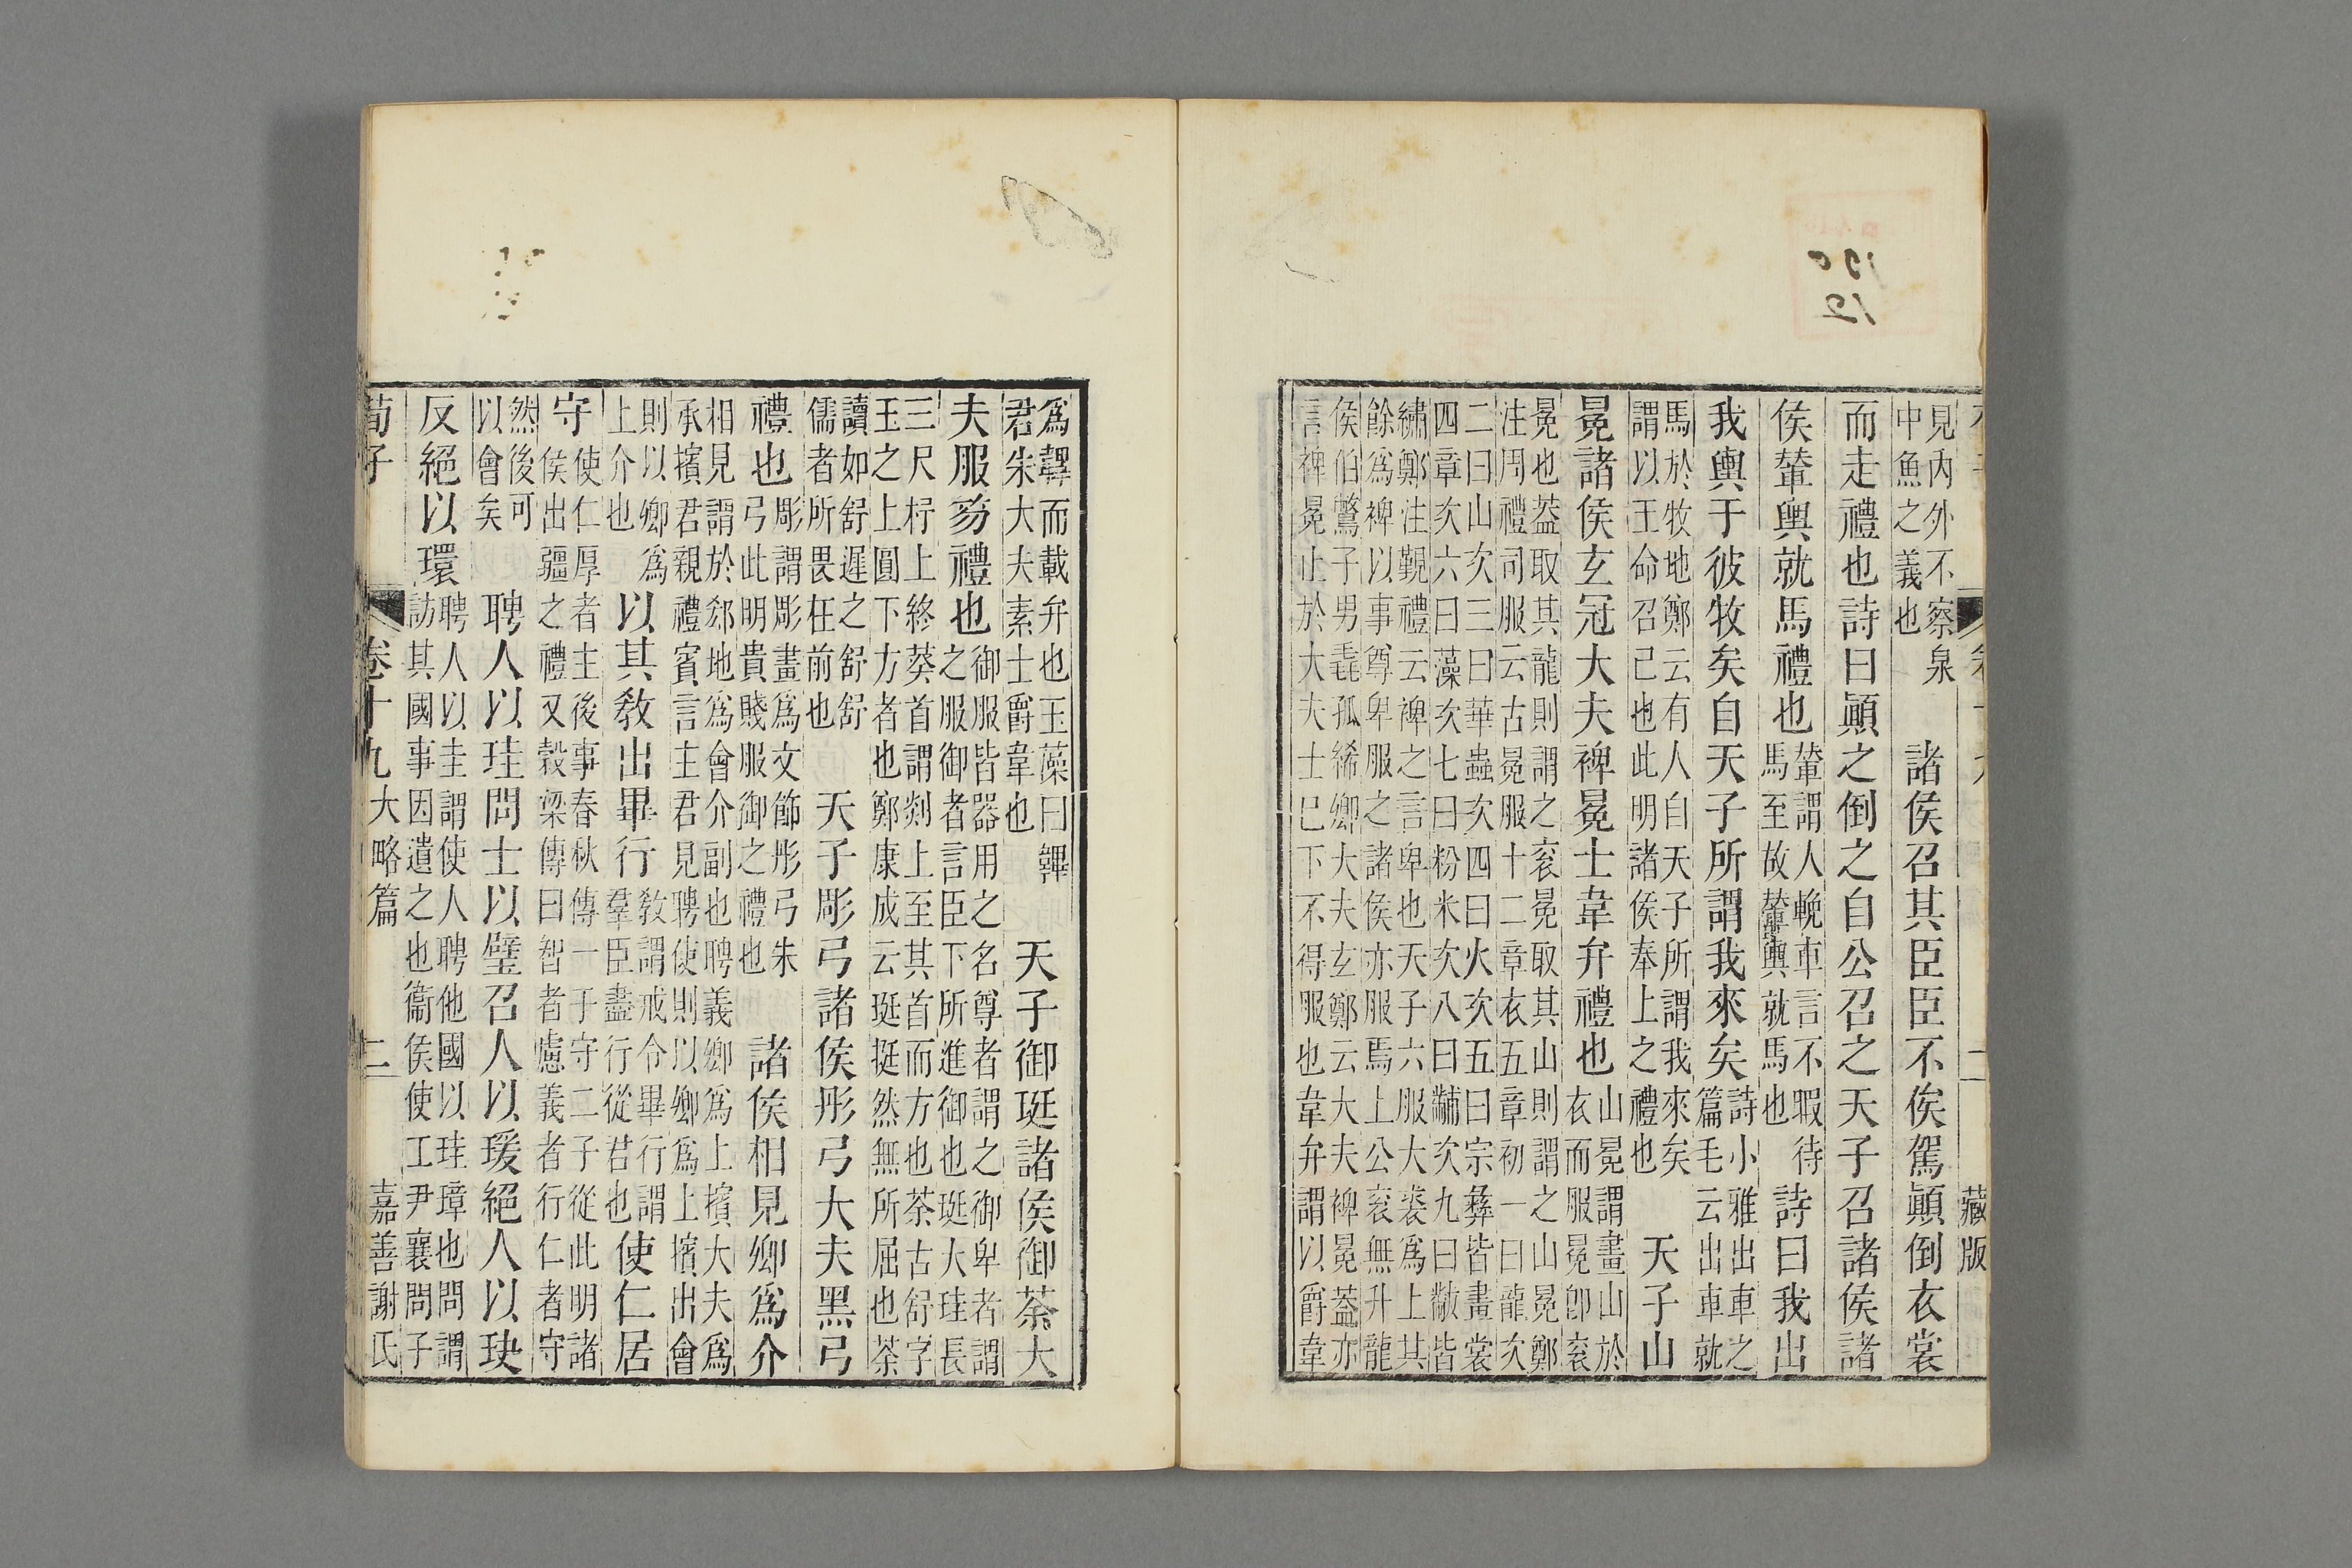 見内外不察泉
中魚之義也
諸侯召其臣臣不俟駕顚倒衣裳
而走禮也詩曰顚之倒之自公召之天子召諸侯諸
侯輦輿就馬禮也
輦謂人輓車言不暇待
馬至故輦輿就馬也
詩曰我出
我輿于彼牧矣自天子所謂我來矣
詩小雅出車之
篇毛云出車就
馬於牧地鄭云有人自天子所謂我來矣
謂以王命召己也此明諸侯奉上之禮也
天子山
冕諸侯玄冠大夫裨冕士韋弁禮也
山冕謂畫山於
衣而服冕卽衮
冕也葢取其龍則謂之衮冕取其山則謂之山冕鄭
注周禮司服云古冕服十二章衣五章初一曰龍次
二曰山次三曰華蟲次四曰火次五曰宗彝皆畫裳
四章次六曰藻次七曰粉米次八曰黼次九曰黻皆
繡鄭注覲禮云裨之言卑也天子六服大裘爲上其
餘爲裨以事尊卑服之諸侯亦服焉上公衮無升龍
侯伯鷩子男毳孤絺卿大夫玄鄭云大夫裨冕葢亦
言裨冕止於大夫士巳下不得服也韋弁謂以爵韋
藏版
爲韠而載弁也玉藻曰韠
君朱大夫素士爵韋也
天子御珽諸侯御荼大
夫服笏禮也
御服皆器用之名尊者謂之御卑者謂
之服御者言臣下所進御也珽大珪長
三尺杼上終葵首謂剡上至其首而方也荼古舒字
玉之上圓下方者也鄭康成云珽挺然無所屈也荼
讀如舒遲之舒舒
儒者所畏在前也
天子彫弓諸侯彤弓大夫黑弓
禮也
彫謂彫畫爲文節彤弓朱
弓此明貴賤服御之禮也
諸侯相見卿爲介
相見謂於郄地爲會介副也聘義卿爲上擯大夫爲
承擯君親禮賓言主君見聘使則以卿爲上擯出會
則以卿爲
上介也
以其敎出畢行
敎謂戒令畢行謂
羣臣盡行從君也
使仁居
守
使仁厚者主後事春秋傳一于守二子從此明諸
侯出疆之禮又穀梁傳曰智者慮義者行仁者守
然後可
以會矣
聘人以珪問士以璧召人以瑗絕人以玦
反絕以環
聘人以圭謂使人聘他國以珪璋也問謂
訪其國事因遺之也衞侯使工尹襄問子
荀子
卷十九大略篇
二
嘉善謝氏